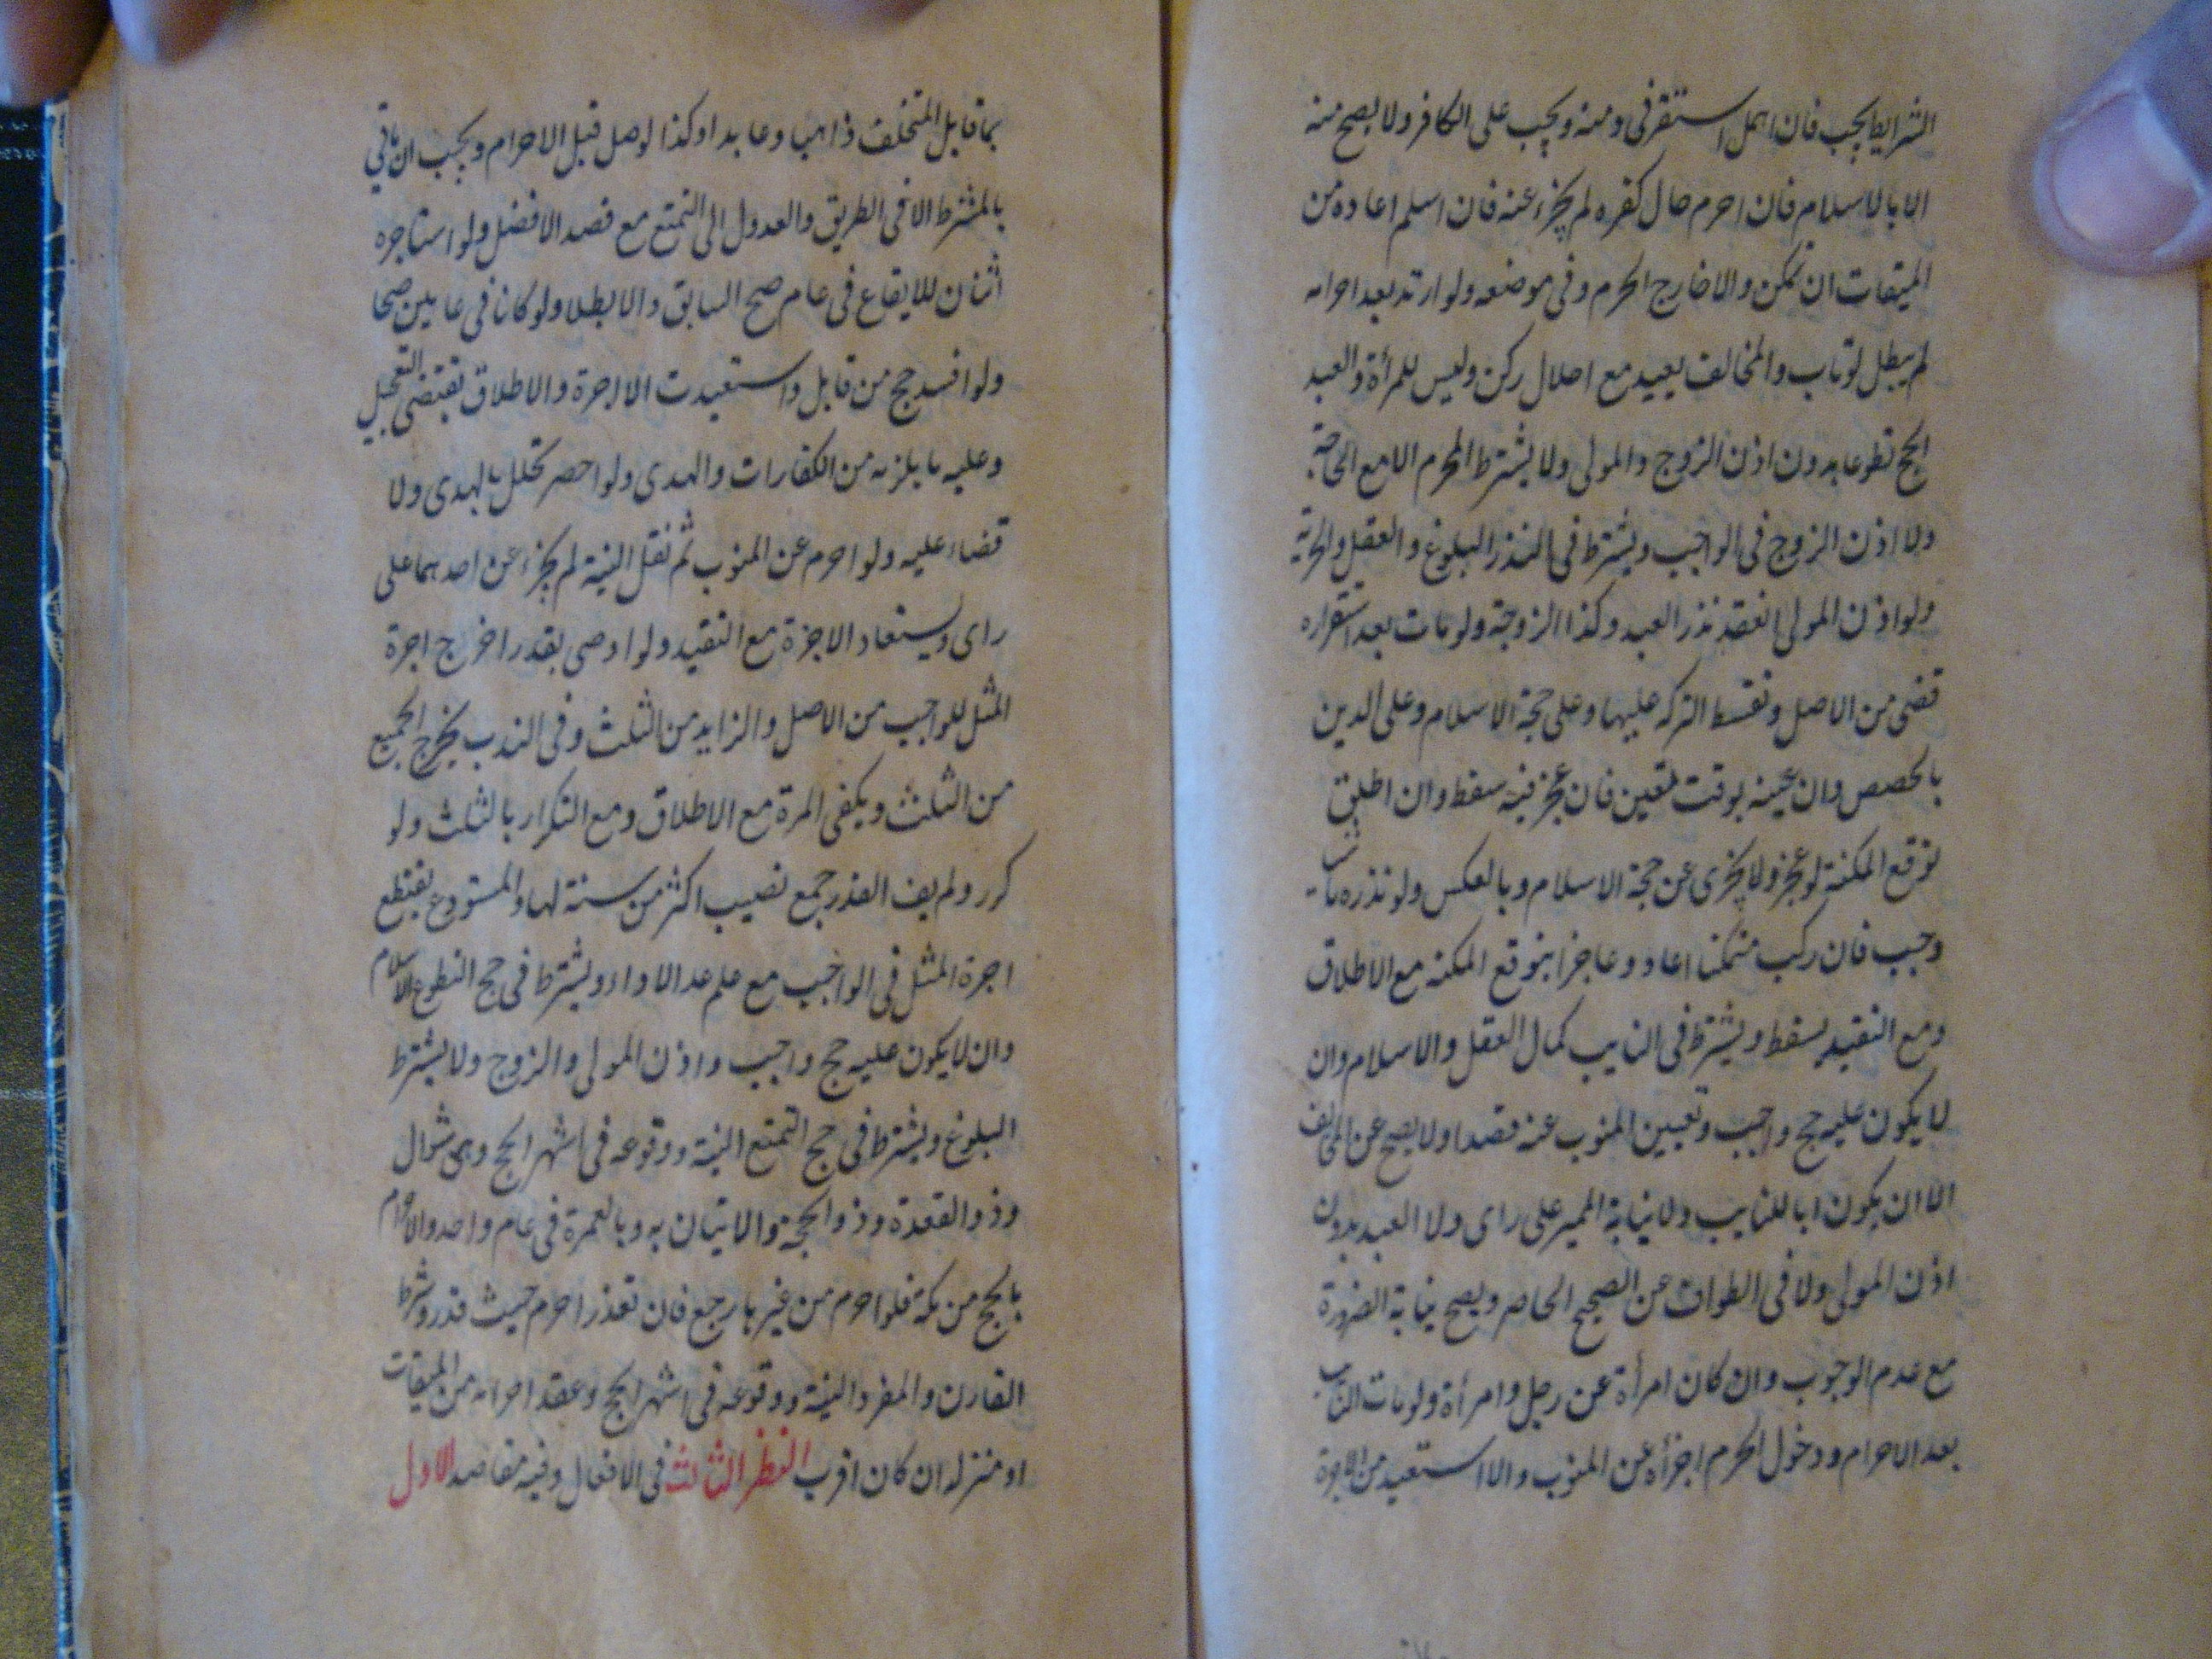 الشرايط يجب فان اهمل استقر فى ذمته ويجب على الكافر ولا يصح منه
الا بالاسلام فان احرم حال كفره لم يجزء عنه فان اسلم اعاده من
الميقات ان تمكن والا خارج الحرم وفى موضعه ولو ارتد بعد احرامه
لم يبطل لو تاب والمخالف يعيد مع اخلال ركن وليس للمرأة والعبد
الحج تطوعا بدون اذن الزوج والمولى ولا يشترط المحرم الا مع الحاجة
ولا اذن الزوج فى الواجب ويشترط فى النذر البلوغ والعقل والحرية
ولو اذن المولى انعقد نذر العبد وكذا الزوجة ولو مات بعد استقراره
قضى من الاصل وتقسط التركه عليها وعلى حجة الاسلام وعلى الدين
بالحصص وان عينه بوقت تعين فان عجز فيه سقط وان اطلق
توقع المكنة لو عجز ولا يجزى عن حجة الاسلام وبالعكس ولو نذره ماشيا
وجب فان ركب متمكنا اعاد وعاجزا يتوقع المكنه مع الاطلاق
ومع التقييد يسقط ويشترط فى النايب كمال العقل والاسلام وان
لا يكون عليه حج واجب وتعيين المنوب عنه قصدا ولا يصح عن المخالف
الا ان يكون ابا للنايب ولا نيابة المميز على راى ولا العبد بدون
اذن المولى ولا فى الطواف عن الصحيح الحاضر ويصح نيابة الصرورة
مع عدم الوجوب وان كان امرأة عن رجل وامرأة ولو مات النايب
بعد الاحرام ودخول الحرم اجزأه عن المنوب والا استعيد من الاجرة
بما قابل المتخلف ذاهبا وعايدا وكذا لو صل قبل الاحرام ويجب ان ياتي
بالمشترط الا فى الطريق والعدول الى التمتع مع قصد الافضل ولو استاجره
اثنان للايقاع فى عام صح السابق والا بطلا ولو كانا فى عامين صحا
ولو افسد حج من قابل واستعيدت الاجرة والاطلاق يقتضى التعجيل
وعليه ما يلزمه من الكفارات والهدى ولو احصر تحلل بالهدى ولا
قضاء عليه ولو احرم عن المنوب ثم نقل النية لم يجزء عن احدهما على
راى ويستعاد الاجرة مع التقييد ولو اوصى بقدر اخرج اجرة
المثل للواجب من الاصل والزايد من الثلث وفى الندب يخرج الجميع
من الثلث ويكفى المرة مع الاطلاق ومع التكرار بالثلث ولو
كرر ولم يف القدر جمع نصيب اكثر من سنة لها والمستودع يقتطع
اجرة المثل فى الواجب مع علم عدم الاداء ويشترط فى حج التطوع الاسلام
وان لا يكون عليه حج واجب واذن المولى والزوج ولا يشترط
البلوغ ويشترط فى حج التمتع النية ووقوعه فى اشهر الحج وهى شوال
وذو القعدة وذو الحجة والاتيان به وبالعمرة فى عام واحد والاحرام
بالحج من مكة فلو احرم من غيرها رجع فان تعذر احرم حيث قدر وشرط
القارن والمفرد النية ووقوعه فى اشهر الحج وعقد احرامه من الميقات
او منزله ان كان اقرب النظر الثالث فى الافعال وفيه مقاصد الاول